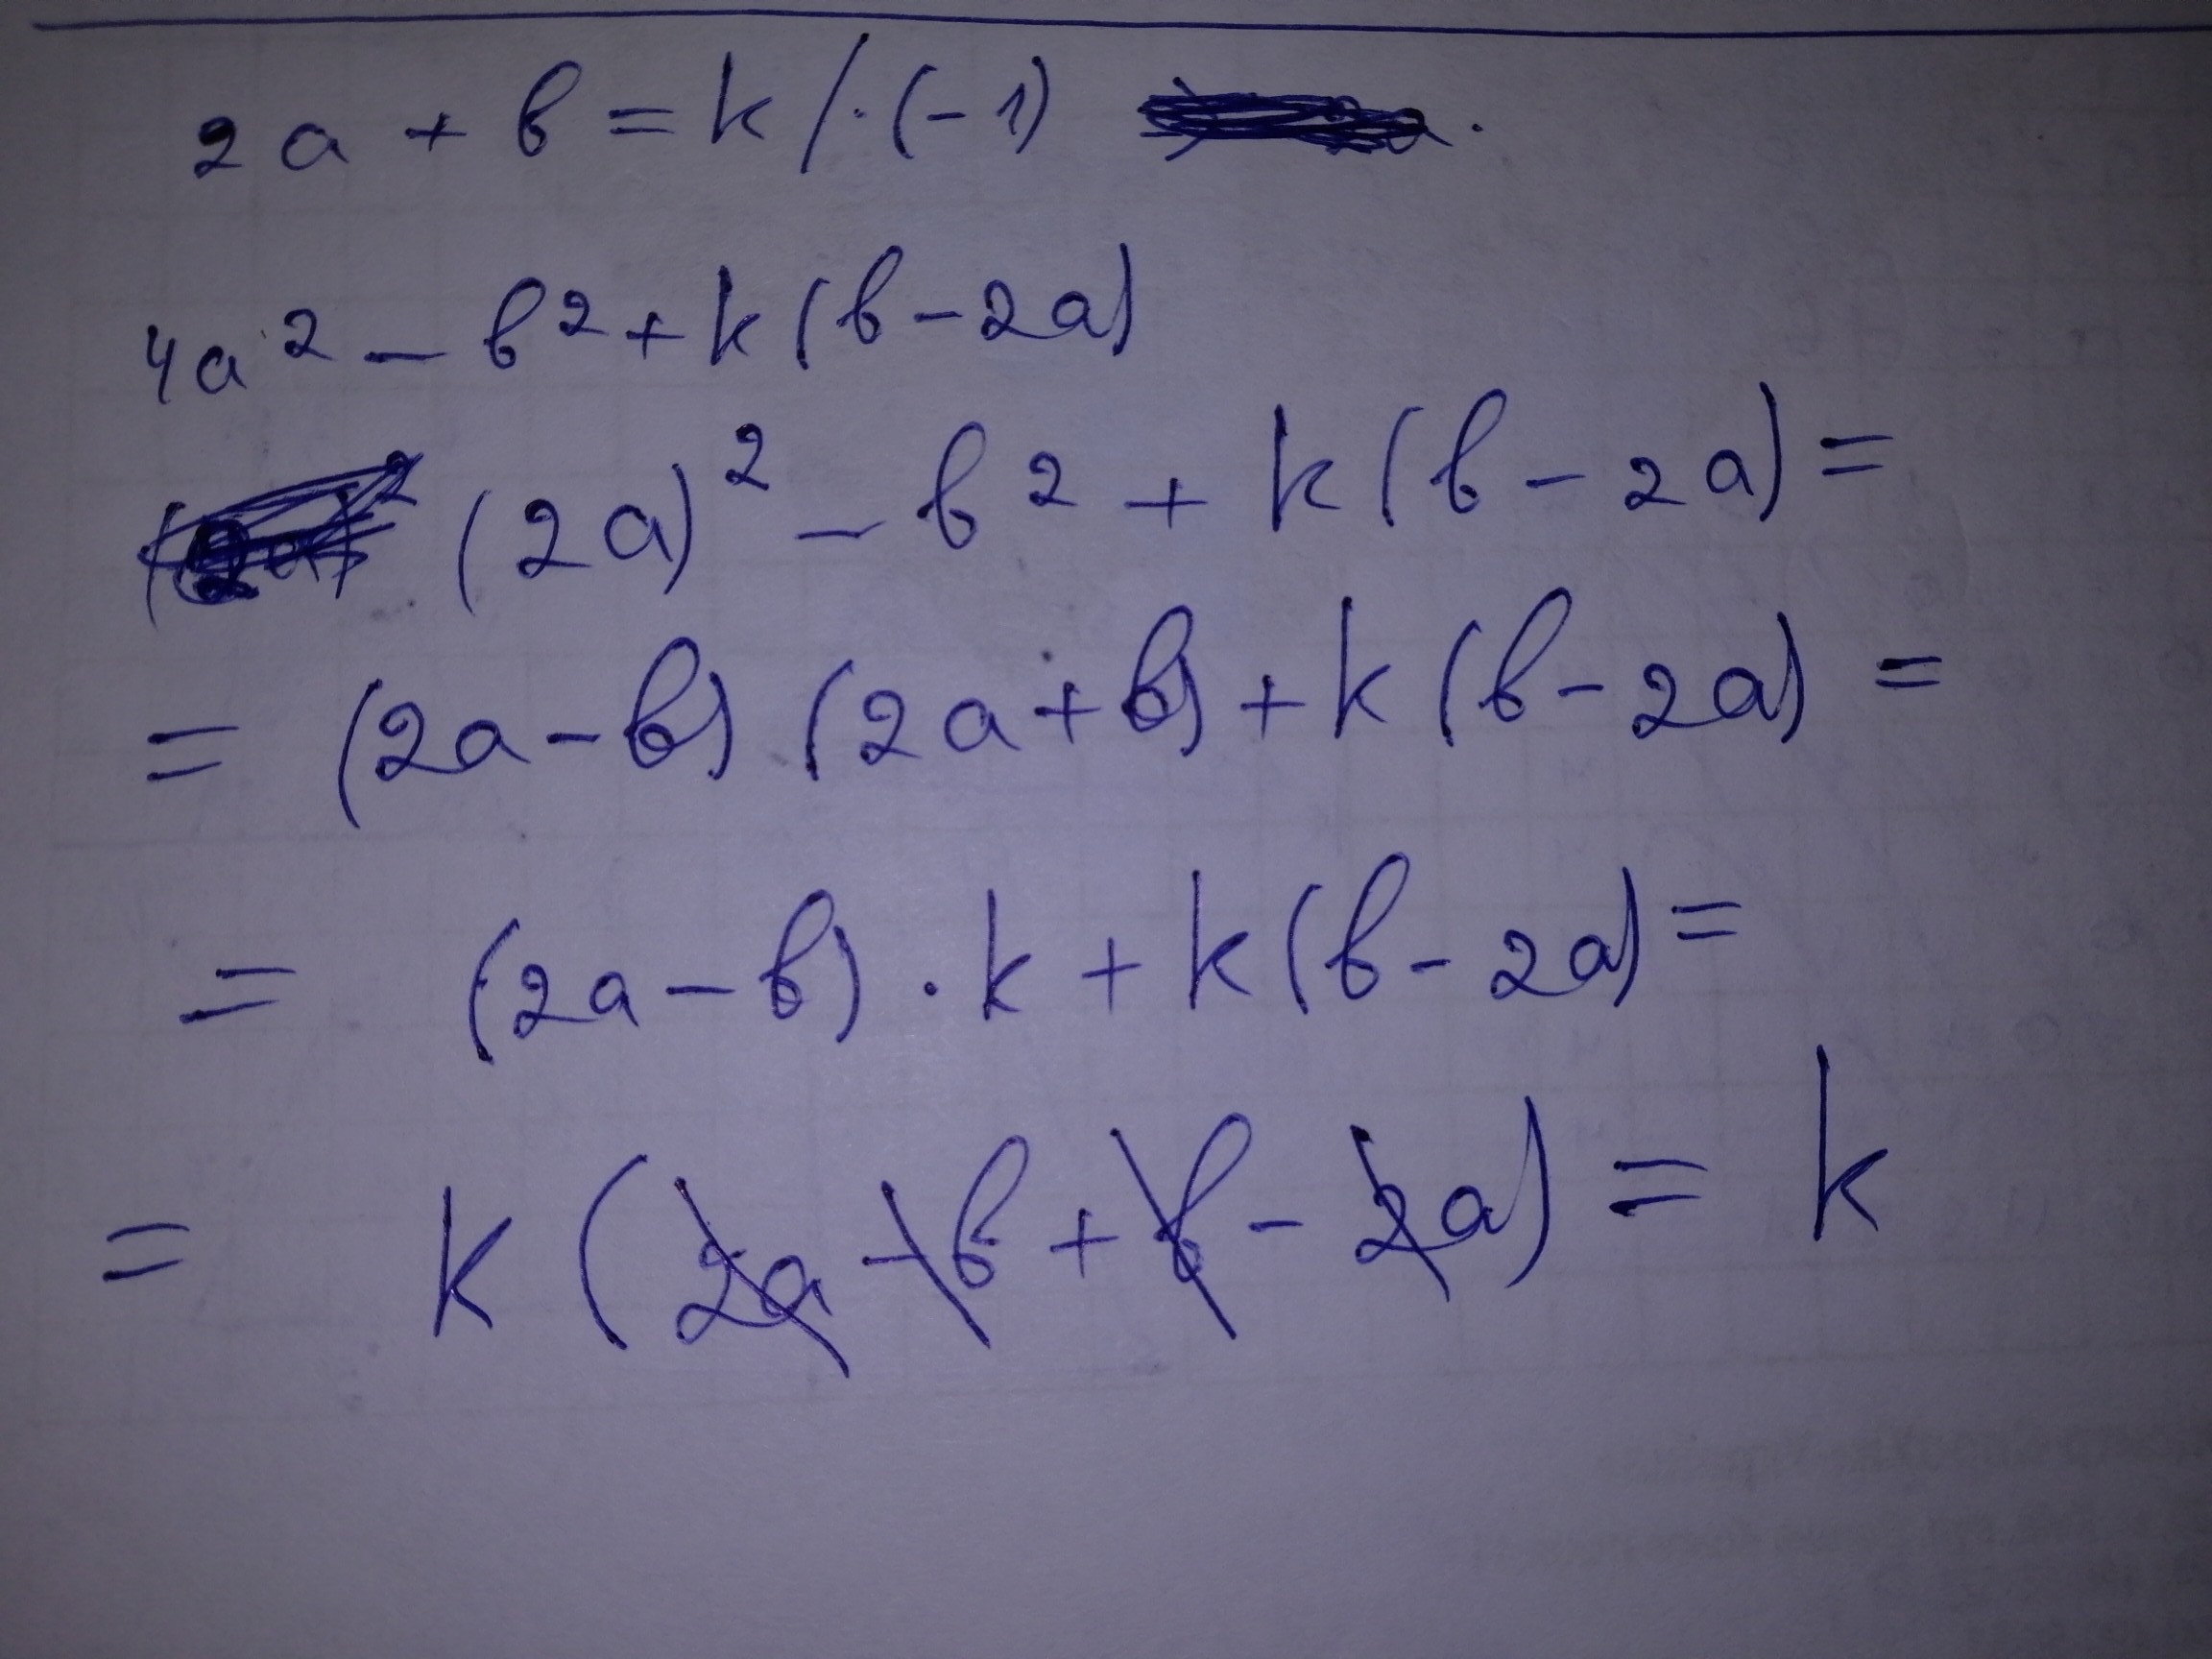 2a + b = k / · (-1)
4a² - b² + k(b - 2a)
(2a)² - b² + k(b - 2a) =
= (2a - b) (2a + b) + k(b - 2a) =
= (2a - b) · k + k(b - 2a) =
= k(2a - b + b - 2a) = k